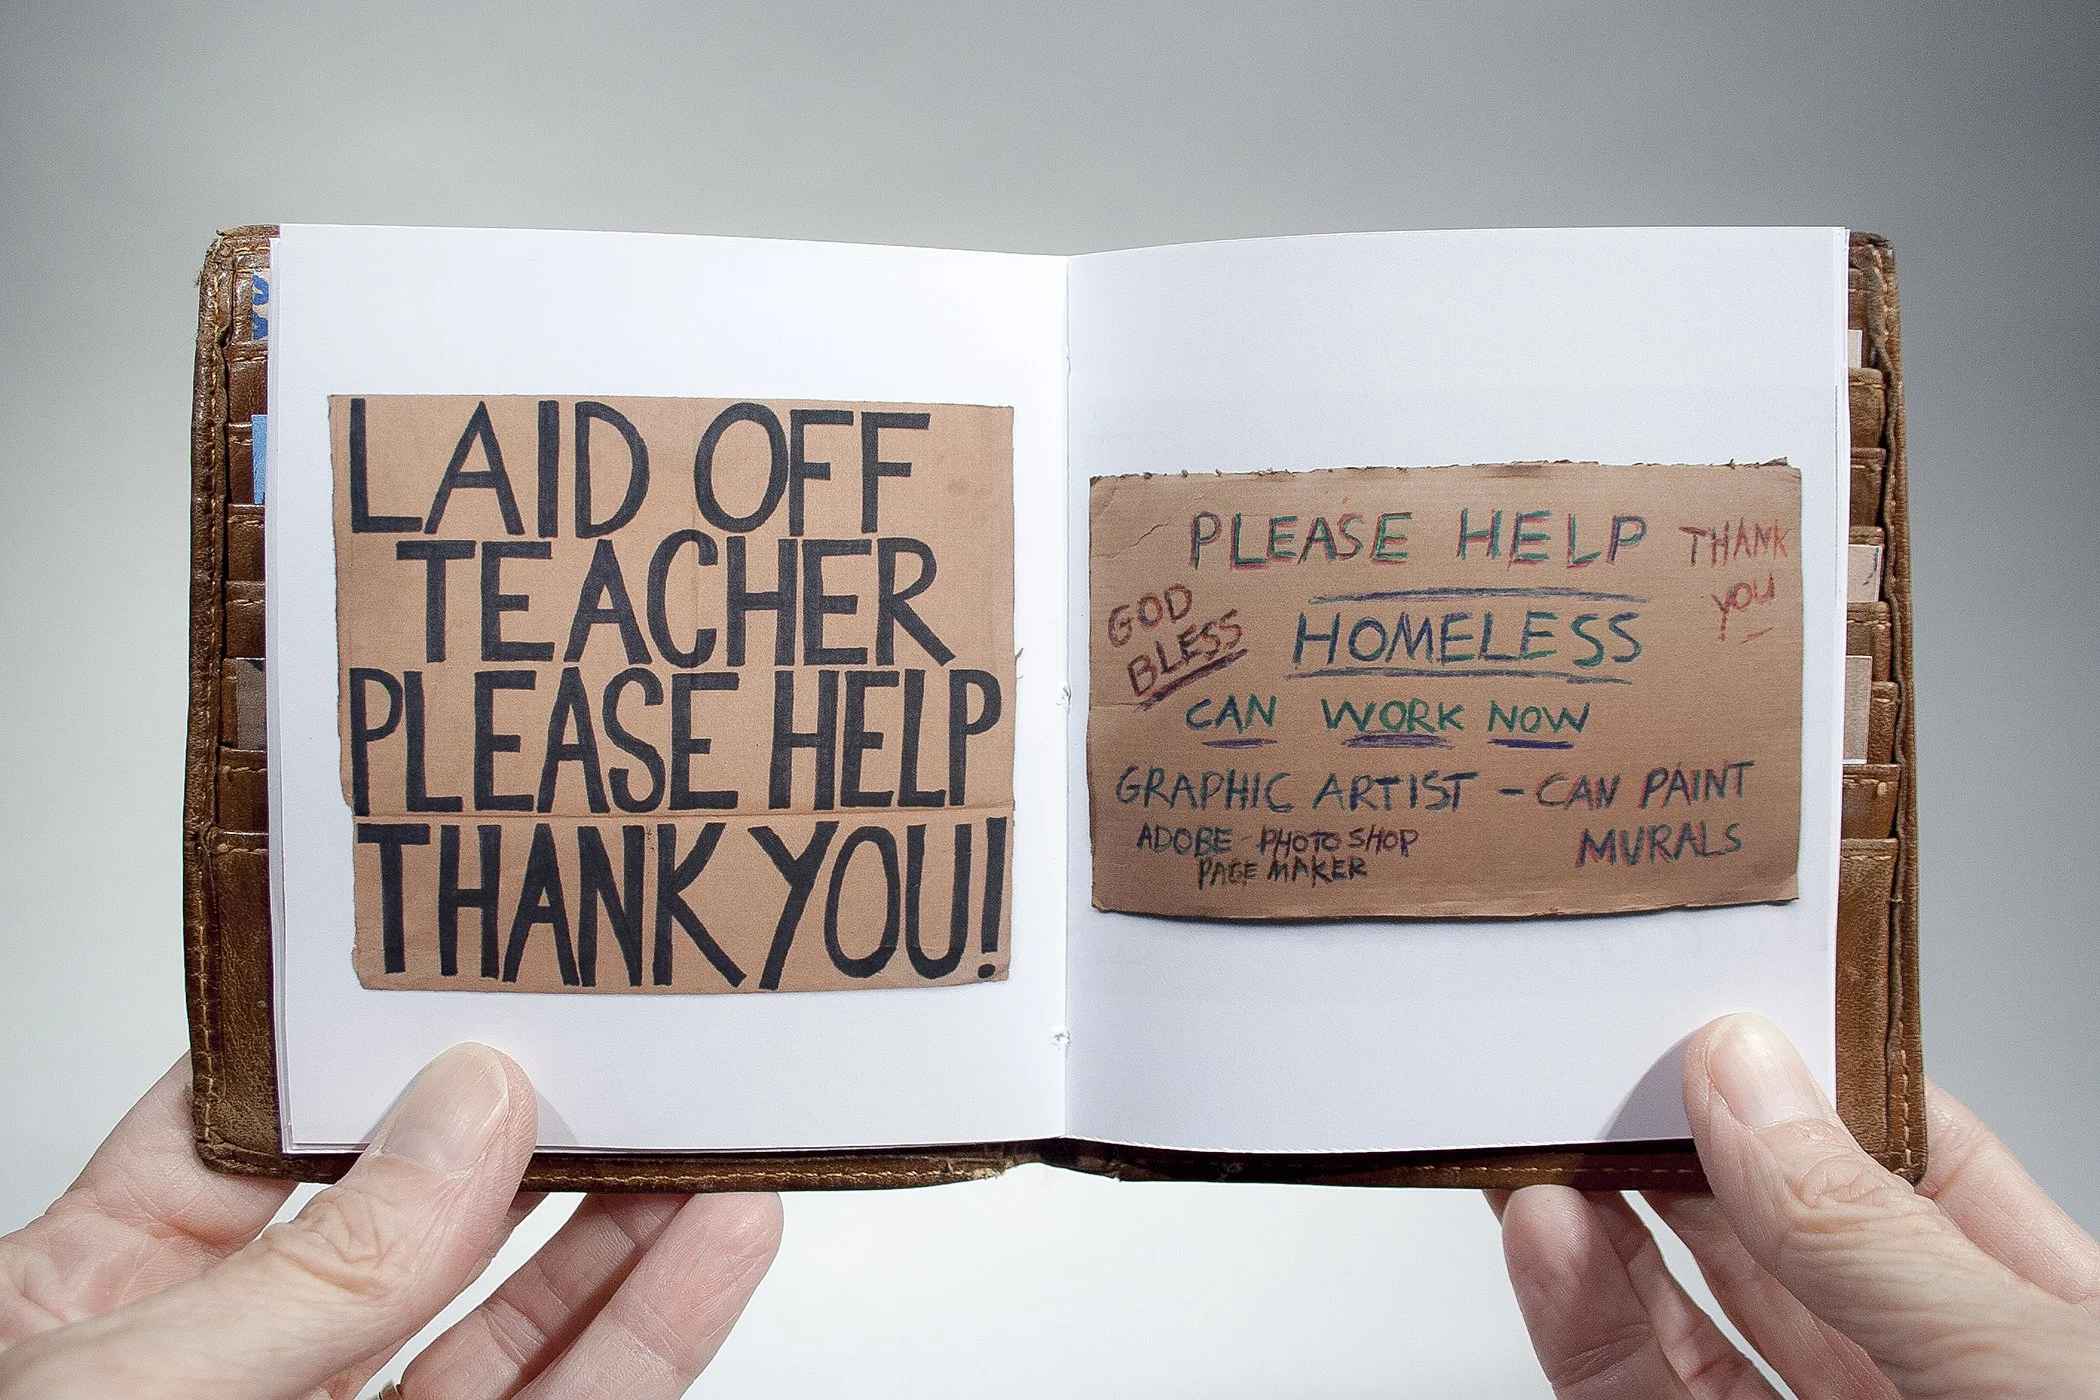 LAID OFF
TEACHER
PLEASE HELP
THANK YOU!
PLEASE HELP
THANK
YOU
GOD
BLESS
HOMELESS
CAN WORK NOW
GRAPHIC ARTIST - CAN PAINT
MURALS
ADOBE - PHOTO SHOP
PAGE MAKER